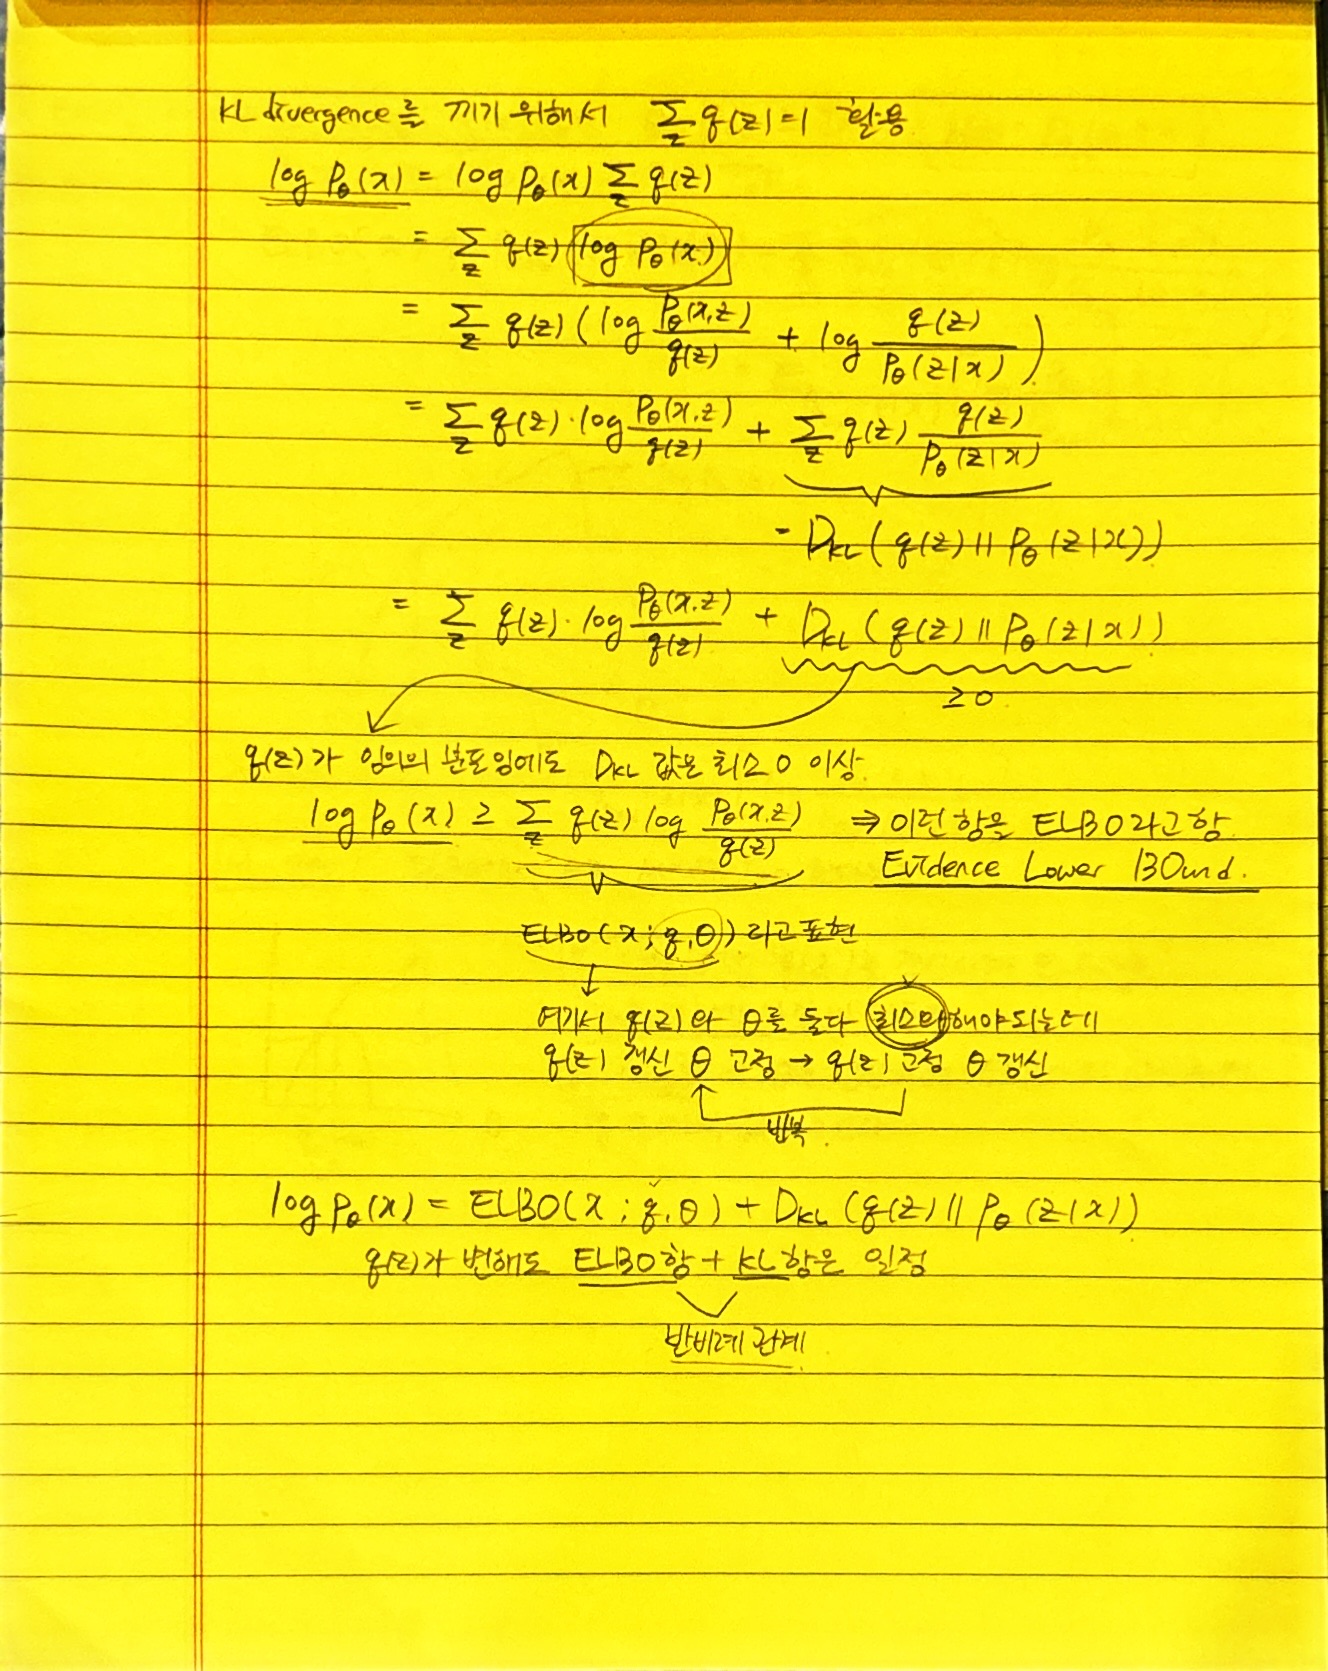 KL divergence를 끼기 위해서 ∑_z q(z)=1 활용
log P_θ(x) = log P_θ(x) ∑_z q(z)
= ∑_z q(z) log P_θ(x)
= ∑_z q(z) ( log P_θ(x,z)/q(z) + log q(z)/P_θ(z|x) )
= ∑_z q(z) · log P_θ(x,z)/q(z) + ∑_z q(z) q(z)/P_θ(z|x)
- D_KL ( q(z) || P_θ(z|x))
= ∑_z q(z) · log P_θ(x,z)/q(z) + D_KL ( q(z) || P_θ(z|x))
≥ 0
q(z)가 임의의 분포임에도 D_KL 값은 최소 0 이상.
log P_θ(x) ≥ ∑_z q(z) log P_θ(x,z)/q(z) ⇒ 이런 항을 ELBO라고 함.
Evidence Lower BOund.
ELBO(x; q,θ) 라고 표현
여기서 q(z)와 θ를 둘다 최소화해야되는데
q(z) 갱신 θ 고정 → q(z) 고정 θ 갱신
반복.
log P_θ(x) = ELBO(x ; q,θ) + D_KL (q(z) || P_θ (z|x))
q(z)가 변해도 ELBO항 + KL항은 일정
반비례 관계